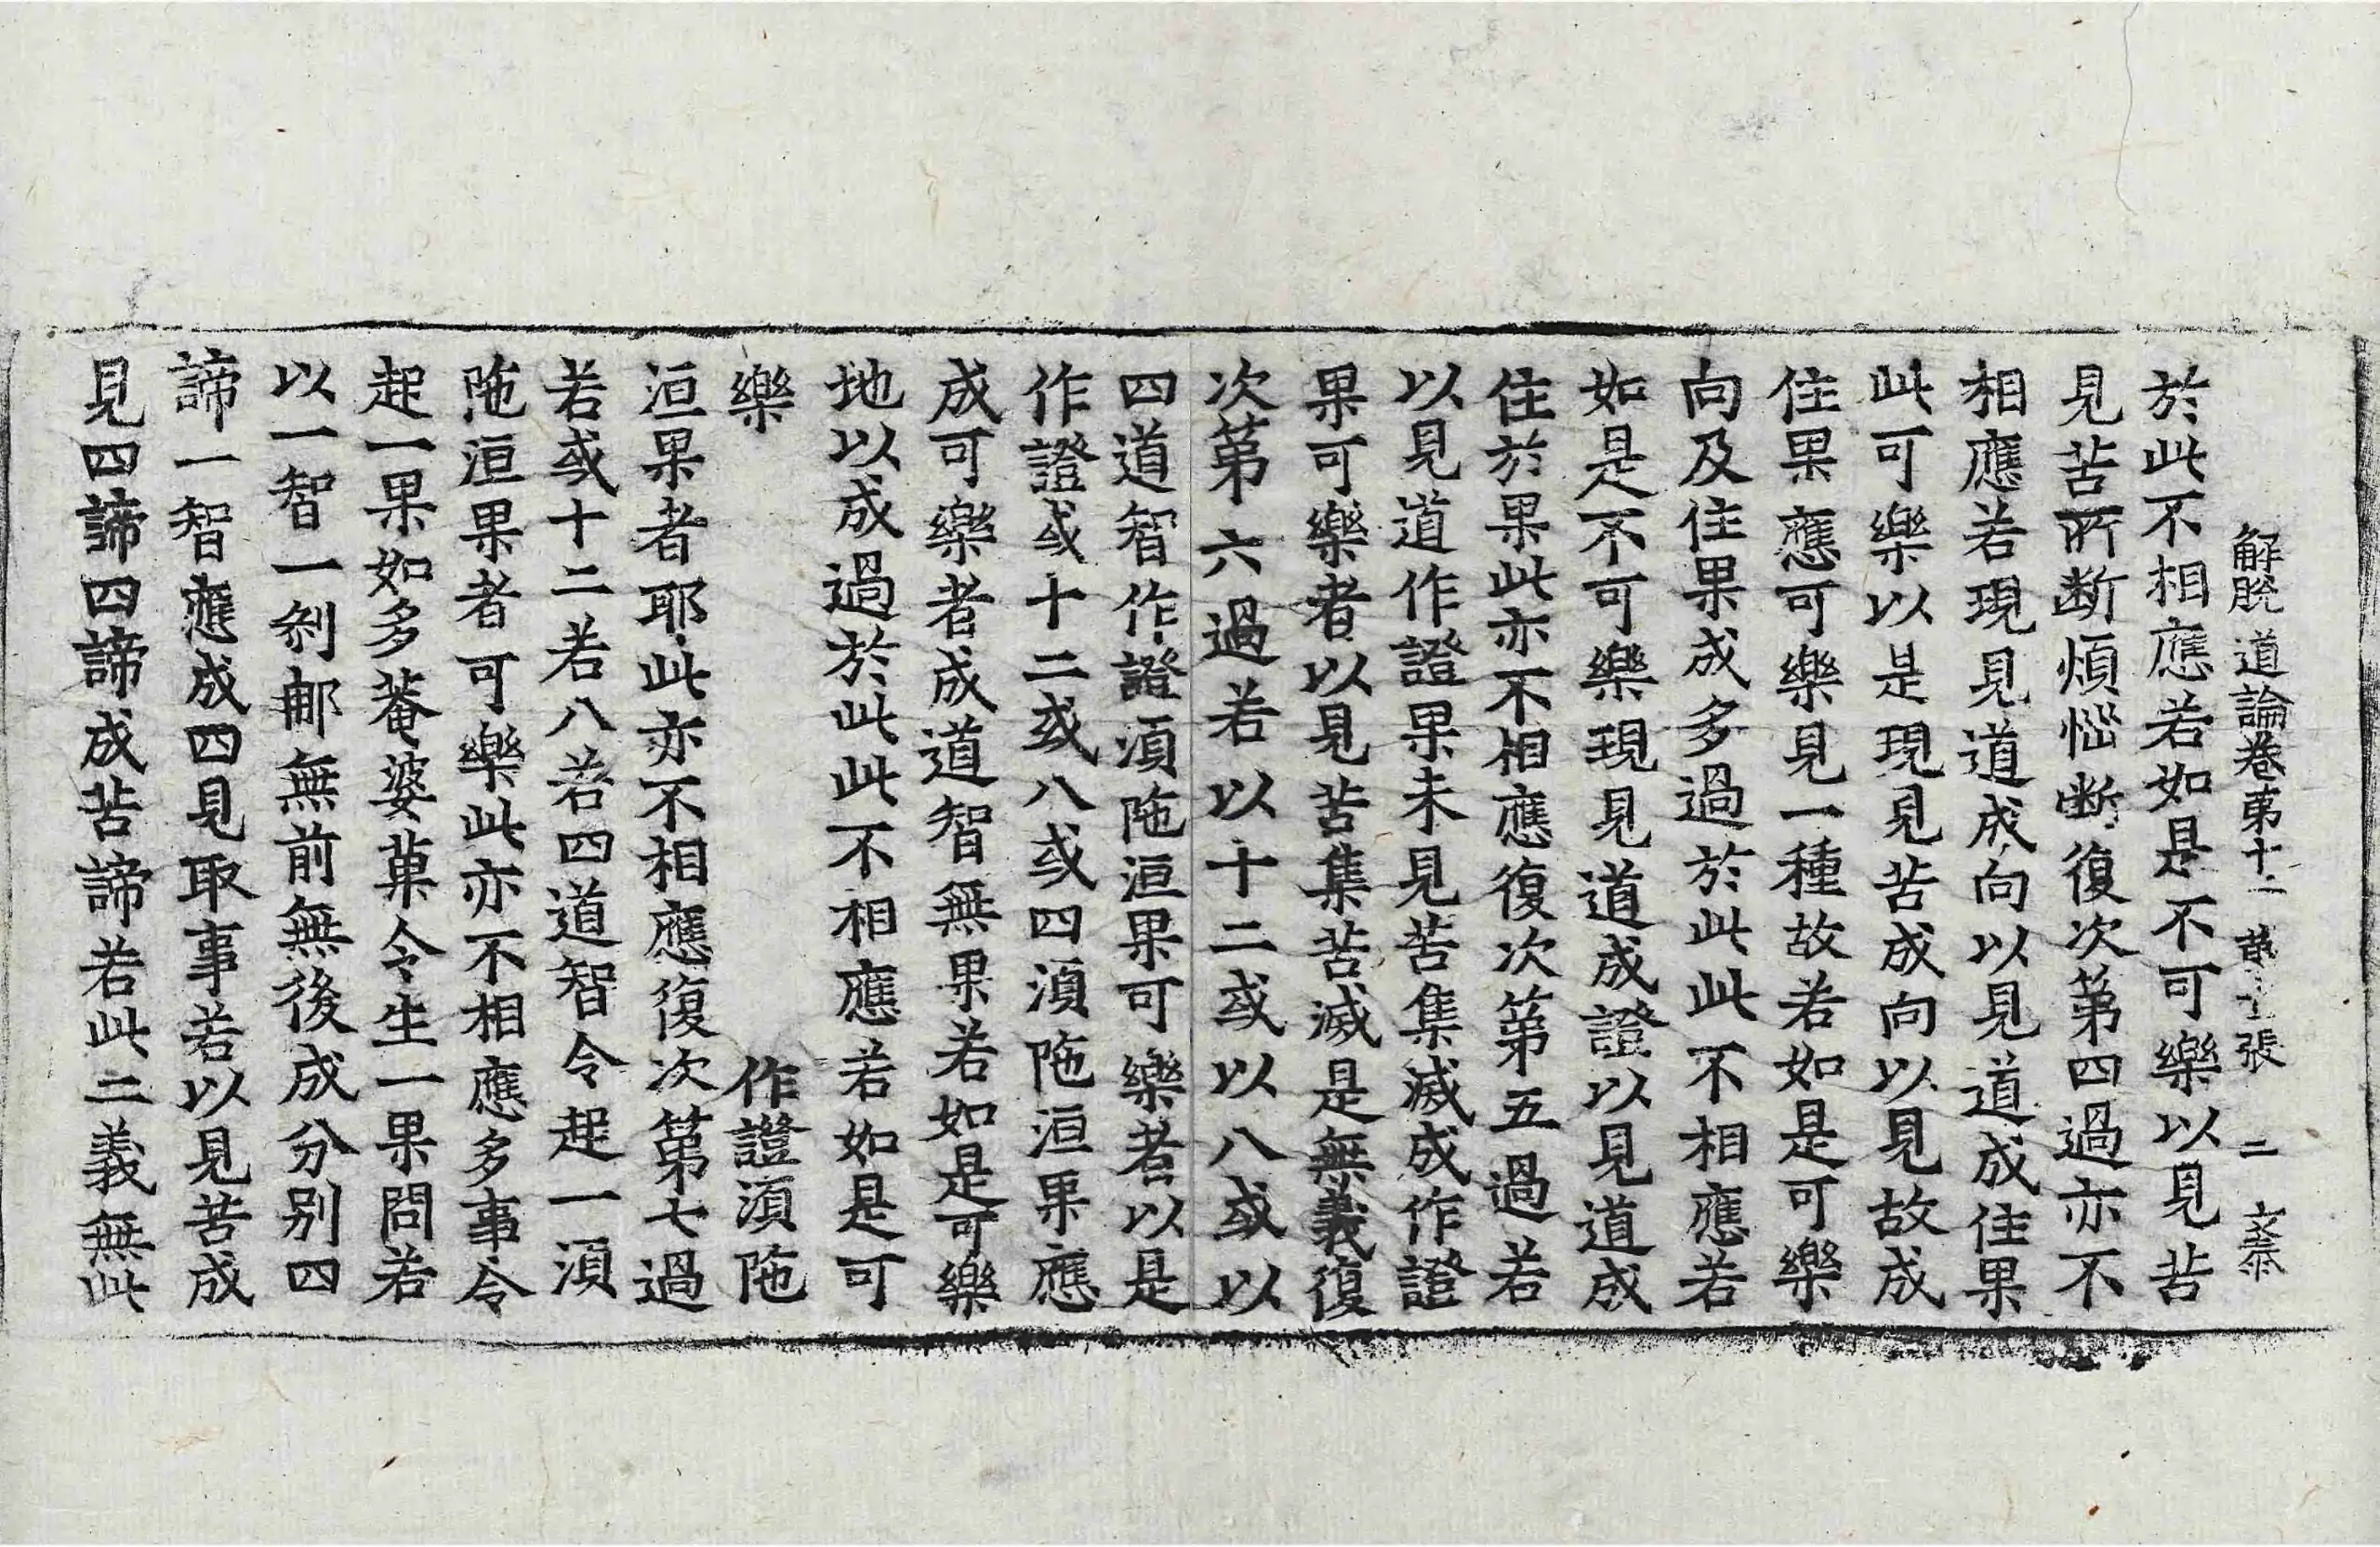 解脫道論卷第十二 張 二
於此不相應若如是不可樂以見苦
見苦所断煩惱断復次第四過亦不
相應若現見道成向以見道成住果
此可樂以是現見苦成向以見故成
住果應可樂見一種故若如是可樂
向及住果成多過於此此不相應若
如是不可樂現見道成證以見道成
住於果此亦不相應復次第五過若
以見道作證果未見苦集滅成作證
果可樂者以見苦集苦滅是無義復
次第六過若以十二或以八或以
四道智作證湏陁洹果可樂者以是
作證或十二或八或四湏陁洹果應
成可樂者成道智無果若如是可樂
地以成過於此此不相應若如是可
樂 作證湏陁
洹果者耶此亦不相應復次第七過
若或十二若八若四道智令起一湏
陁洹果者可樂此亦不相應多事令
起一果如多菴婆菓令生一果問若
以一智一剎那無前無後成分別四
諦一智應成四見取事若以見苦成
見四諦四諦成苦諦若此二義無此